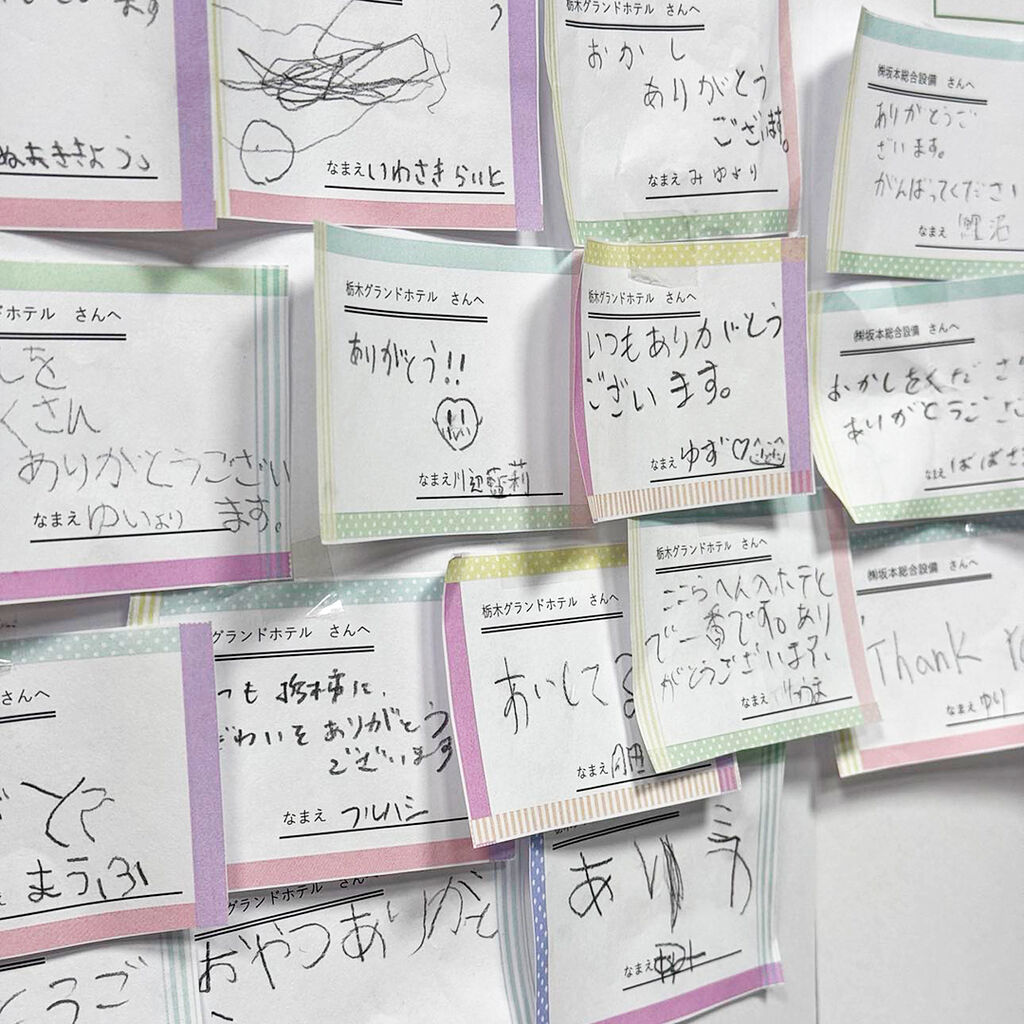 ぬまおききょう。
なまえ いわさき らいと
栃木グランドホテル さんへ
おかし
ありがとう
ございます。
なまえ みゆより
㈱坂本総合設備 さんへ
ありがとうご
ざいます。
がんばってください
なまえ
ドホテル さんへ
しを
くさん
ありがとうござい
ます。
なまえ ゆいより
栃木グランドホテル さんへ
ありがとう!!
なまえ 川辺藍莉
栃木グランドホテル さんへ
いつもありがとう
ございます。
なまえ ゆず♡
㈱坂本総合設備 さんへ
おかしをくださ
ありがとうござ
なまえ ばばさ
さんへ
とう
まうふ
グランドホテル さんへ
つも 栃木市に、
ぎわいを ありがとう
ございます
なまえ フルハシ
栃木グランドホテル さんへ
あいしてる
なまえ
栃木グランドホテル さんへ
ここらへんへホテと
で一番です。あり
がとうございます、
なまえ りゅうま
㈱坂本総合設備 さんへ
Thank
なまえ ゆり
とうご
グランドホテル さんへ
おやつありがと
あり
なまえ